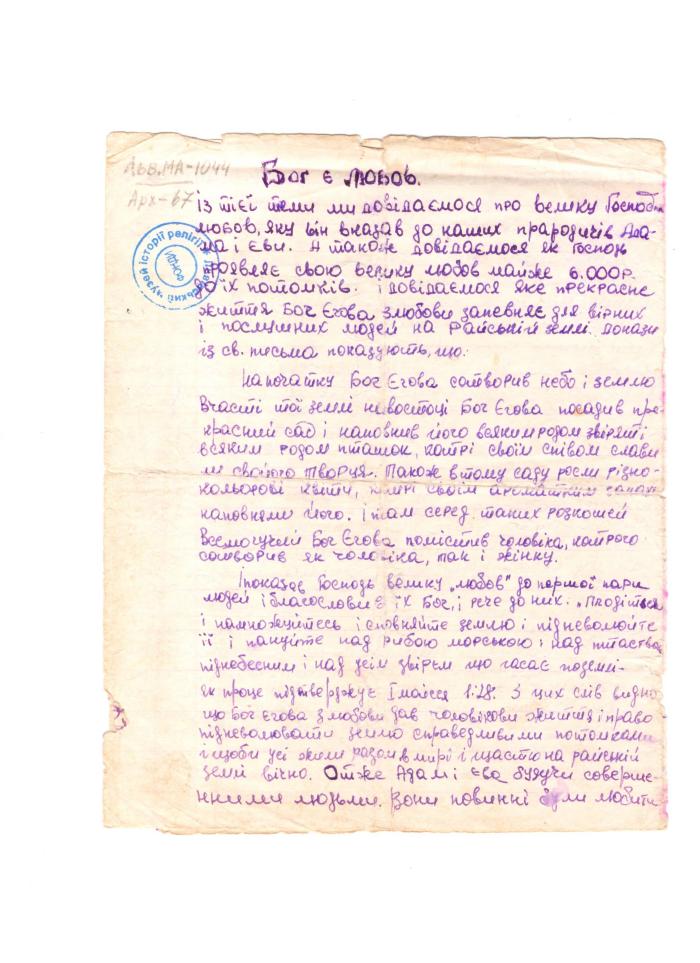 Льв.МА-1044
Арх-67
Бог є любов.
Із тієї теми ми довідаємося про велику Господню
любов, яку він вказав до наших прародичів Ада-
ма і Єви. А також довідаємося як Господь
проявляє свою велику любов майже 6.000 р.
до їх потомків. і довідаємося яке прекрасне
життя Бог Єгова з любови запевняє для вірних
і послушних людей на райській землі докази
із св. письма показують, що:
На початку Бог Єгова сотворив небо і землю
В часті тої землі на востоці Бог Єгова посадив пре-
красний сад і наповнив його всяким родом звіряті
всяким родом пташок, котрі своїм співом слави
ли свойого Творця. Також в тому саду росли різно-
кольорові квіти, котрі своїм ароматним запах
наповняли його. і там серед таких розкошей
Всемогучий Бог Єгова помістив чоловіка, котрого
сотворив як чоловіка, так і жінку.
І показав Господь велику „любов" до першої пари
людей і благословив їх Бог, і рече до них. „Плодіться
і намножуйтесь і сповняйте землю і підневолюйте
її і пануйте над рибою морською і над птаством
піднебесним і над усім звірєм що гасає по землі-
як про це підтверджує І мойсея 1:28. З цих слів видно
що Бог Єгова з любови дав чоловікови життя і право
підневолювати землю справедливими потомками
і щоби усі жили разом в мирі і щастю на райській
землі вічно. Отже Адам і Єва будучи соверше-
нними людьми. Вони повинні були любити
Львівський музей історії релігії